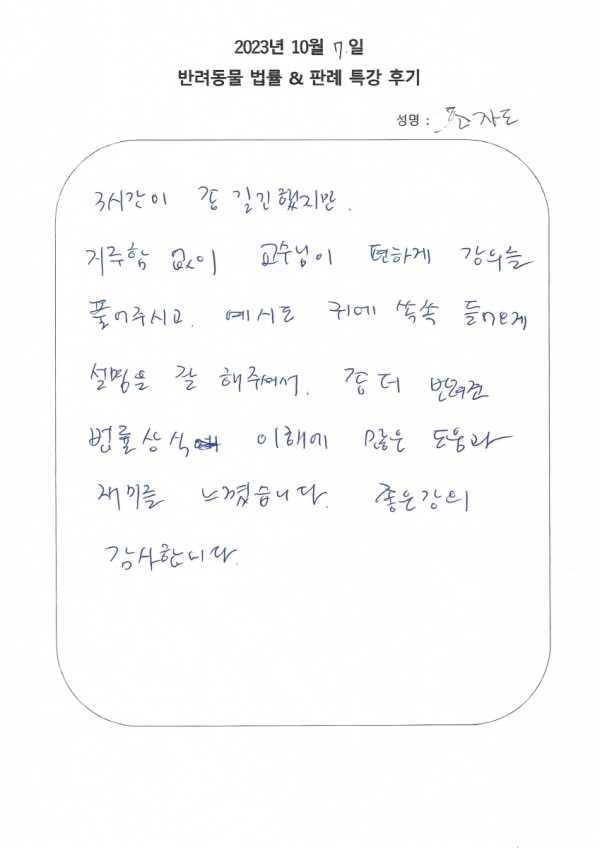 2023년 10월 7.일
반려동물 법률 & 판례 특강 후기
성명 :
3시간이 좀 길긴했지만.
지루함 없이 교수님이 편하게 강의를
풀어주시고. 예시도 귀에 쏙쏙 들어오게
설명을 잘 해주셔서. 좀더 반려견
법률상식 이해에 많은 도움과
재미를 느꼈습니다. 좋은강의
감사합니다.